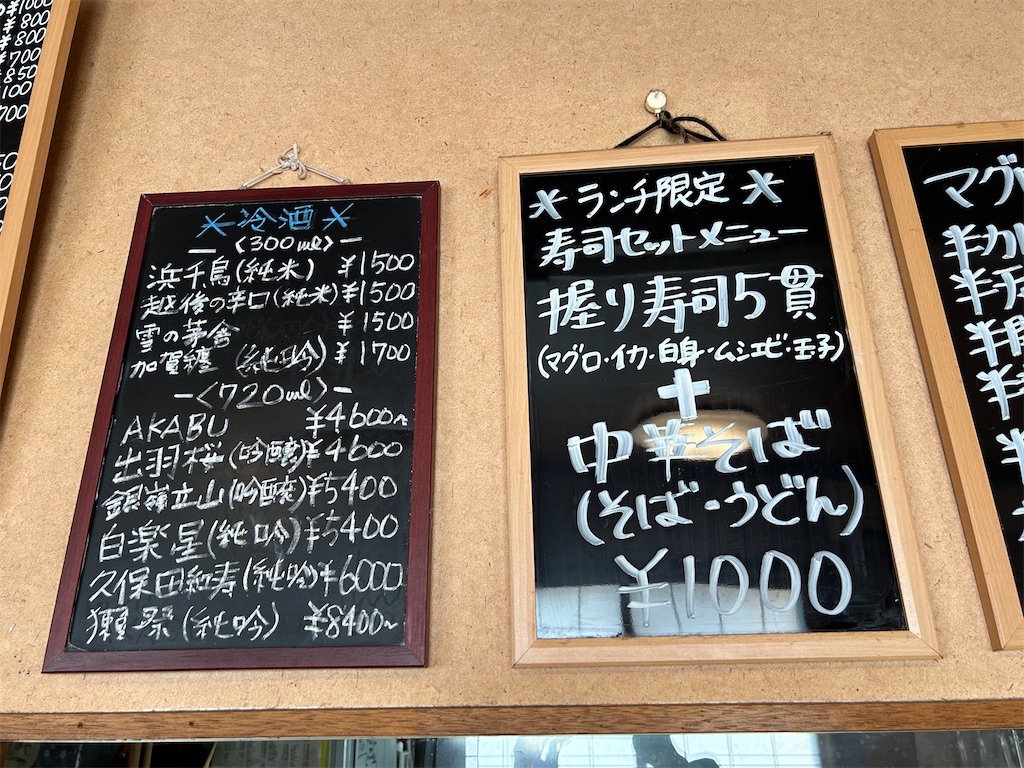 ¥800
¥800
¥700
¥850
700
＊冷酒＊
ー〈300ml〉ー
浜千鳥(純米) ¥1500
越後の辛口(純米) ¥1500
雪の茅舎 ¥1500
加賀纏 (純吟) ¥1700
ー〈720ml〉ー
AKABU ¥4600~
出羽桜(吟醸) ¥4600
銀嶺立山(吟醸) ¥5400
伯楽星(純吟) ¥5400
久保田和寿(純吟) ¥6000
獺祭(純吟) ¥8400~
＊ランチ限定＊
寿司セットメニュー
握り寿司5貫
(マグロ・イカ・白身・ムシエビ・玉子)
＋
中華そば
(そば・うどん)
¥1000
マグ